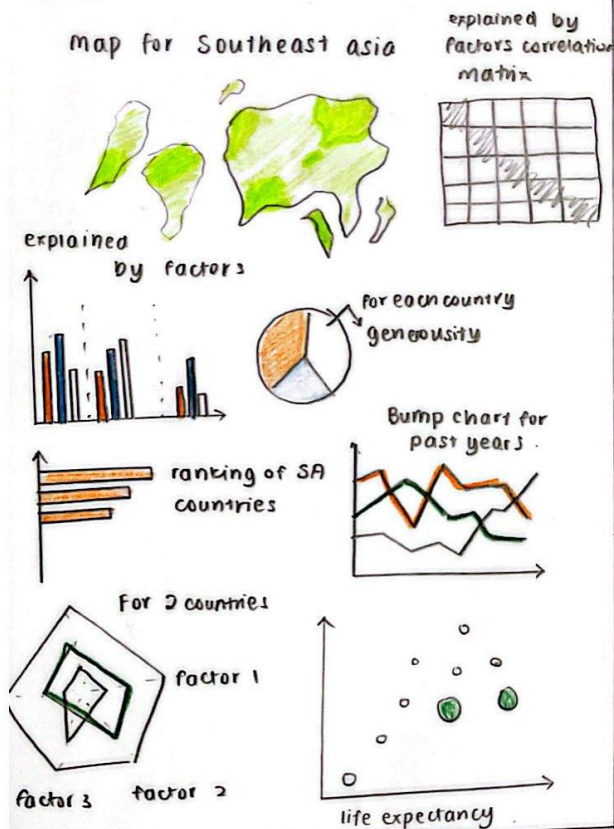 map for Southeast asia
explained by
factors correlation
matrix
explained
by factors
for each country
generousity
Bump chart for
past years.
ranking of SA
countries
For 2 countries
factor 1
factor 2
factor 3
life expectancy